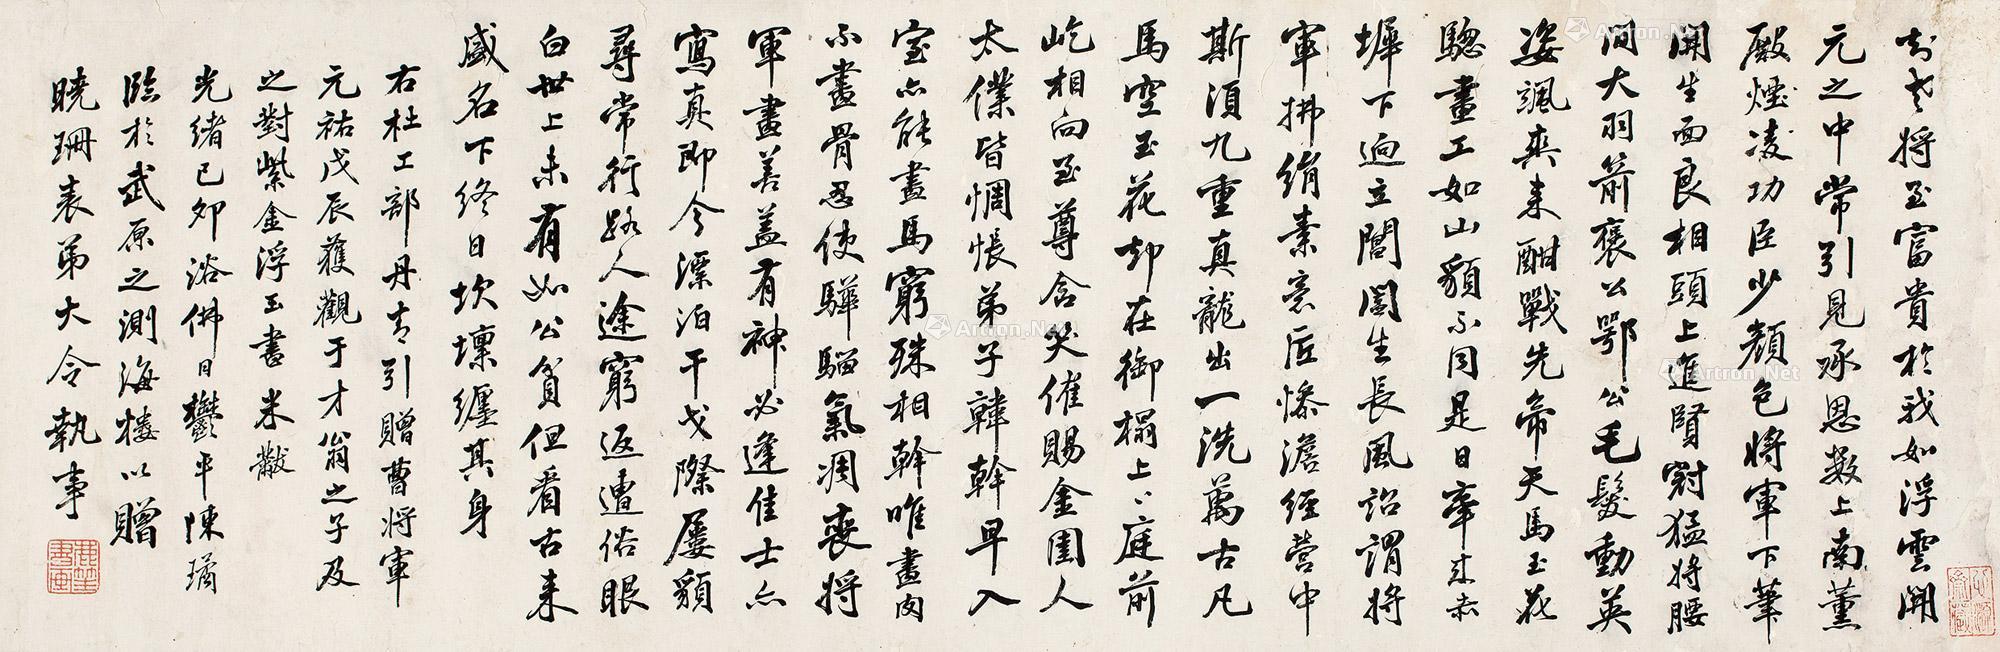 知老將至富貴於我如浮雲開
元之中常引見承恩數上南薰
殿煙凌功臣少顏色將軍下筆
開生面良相頭上進賢冠猛將腰
間大羽箭褒公鄂公毛髮動英
姿颯爽来酣戰先帝天馬玉花
驄畫工如山貌不同是日牽来赤
墀下迥立閶闔生長風詔謂將
軍拂絹素意匠慘澹經營中
斯須九重真龍出一洗萬古凡
馬空玉花却在御榻上上庭前
屹相向至尊含笑催賜金圉人
太僕皆惆悵弟子韓幹早入
室亦能畫馬窮殊相幹唯畫肉
不畫骨忍使驊騮氣凋喪將
軍畫善盖有神必逢佳士亦
寫真即今漂泊干戈際屢貌
尋常行路人途窮返遭俗眼
白世上未有如公貧但看古来
盛名下終日坎壈纏其身
右杜工部丹青引贈曹將軍
元祐戊辰獲觀于才翁之子及
之對紫金浮玉書米黻
光緒己卯浴佛日鬱平陳璚
臨於武原之測海樓以贈
曉珊表弟大令執事
Artron.Net
Artron.Net
Artron.Net
Artron.Net